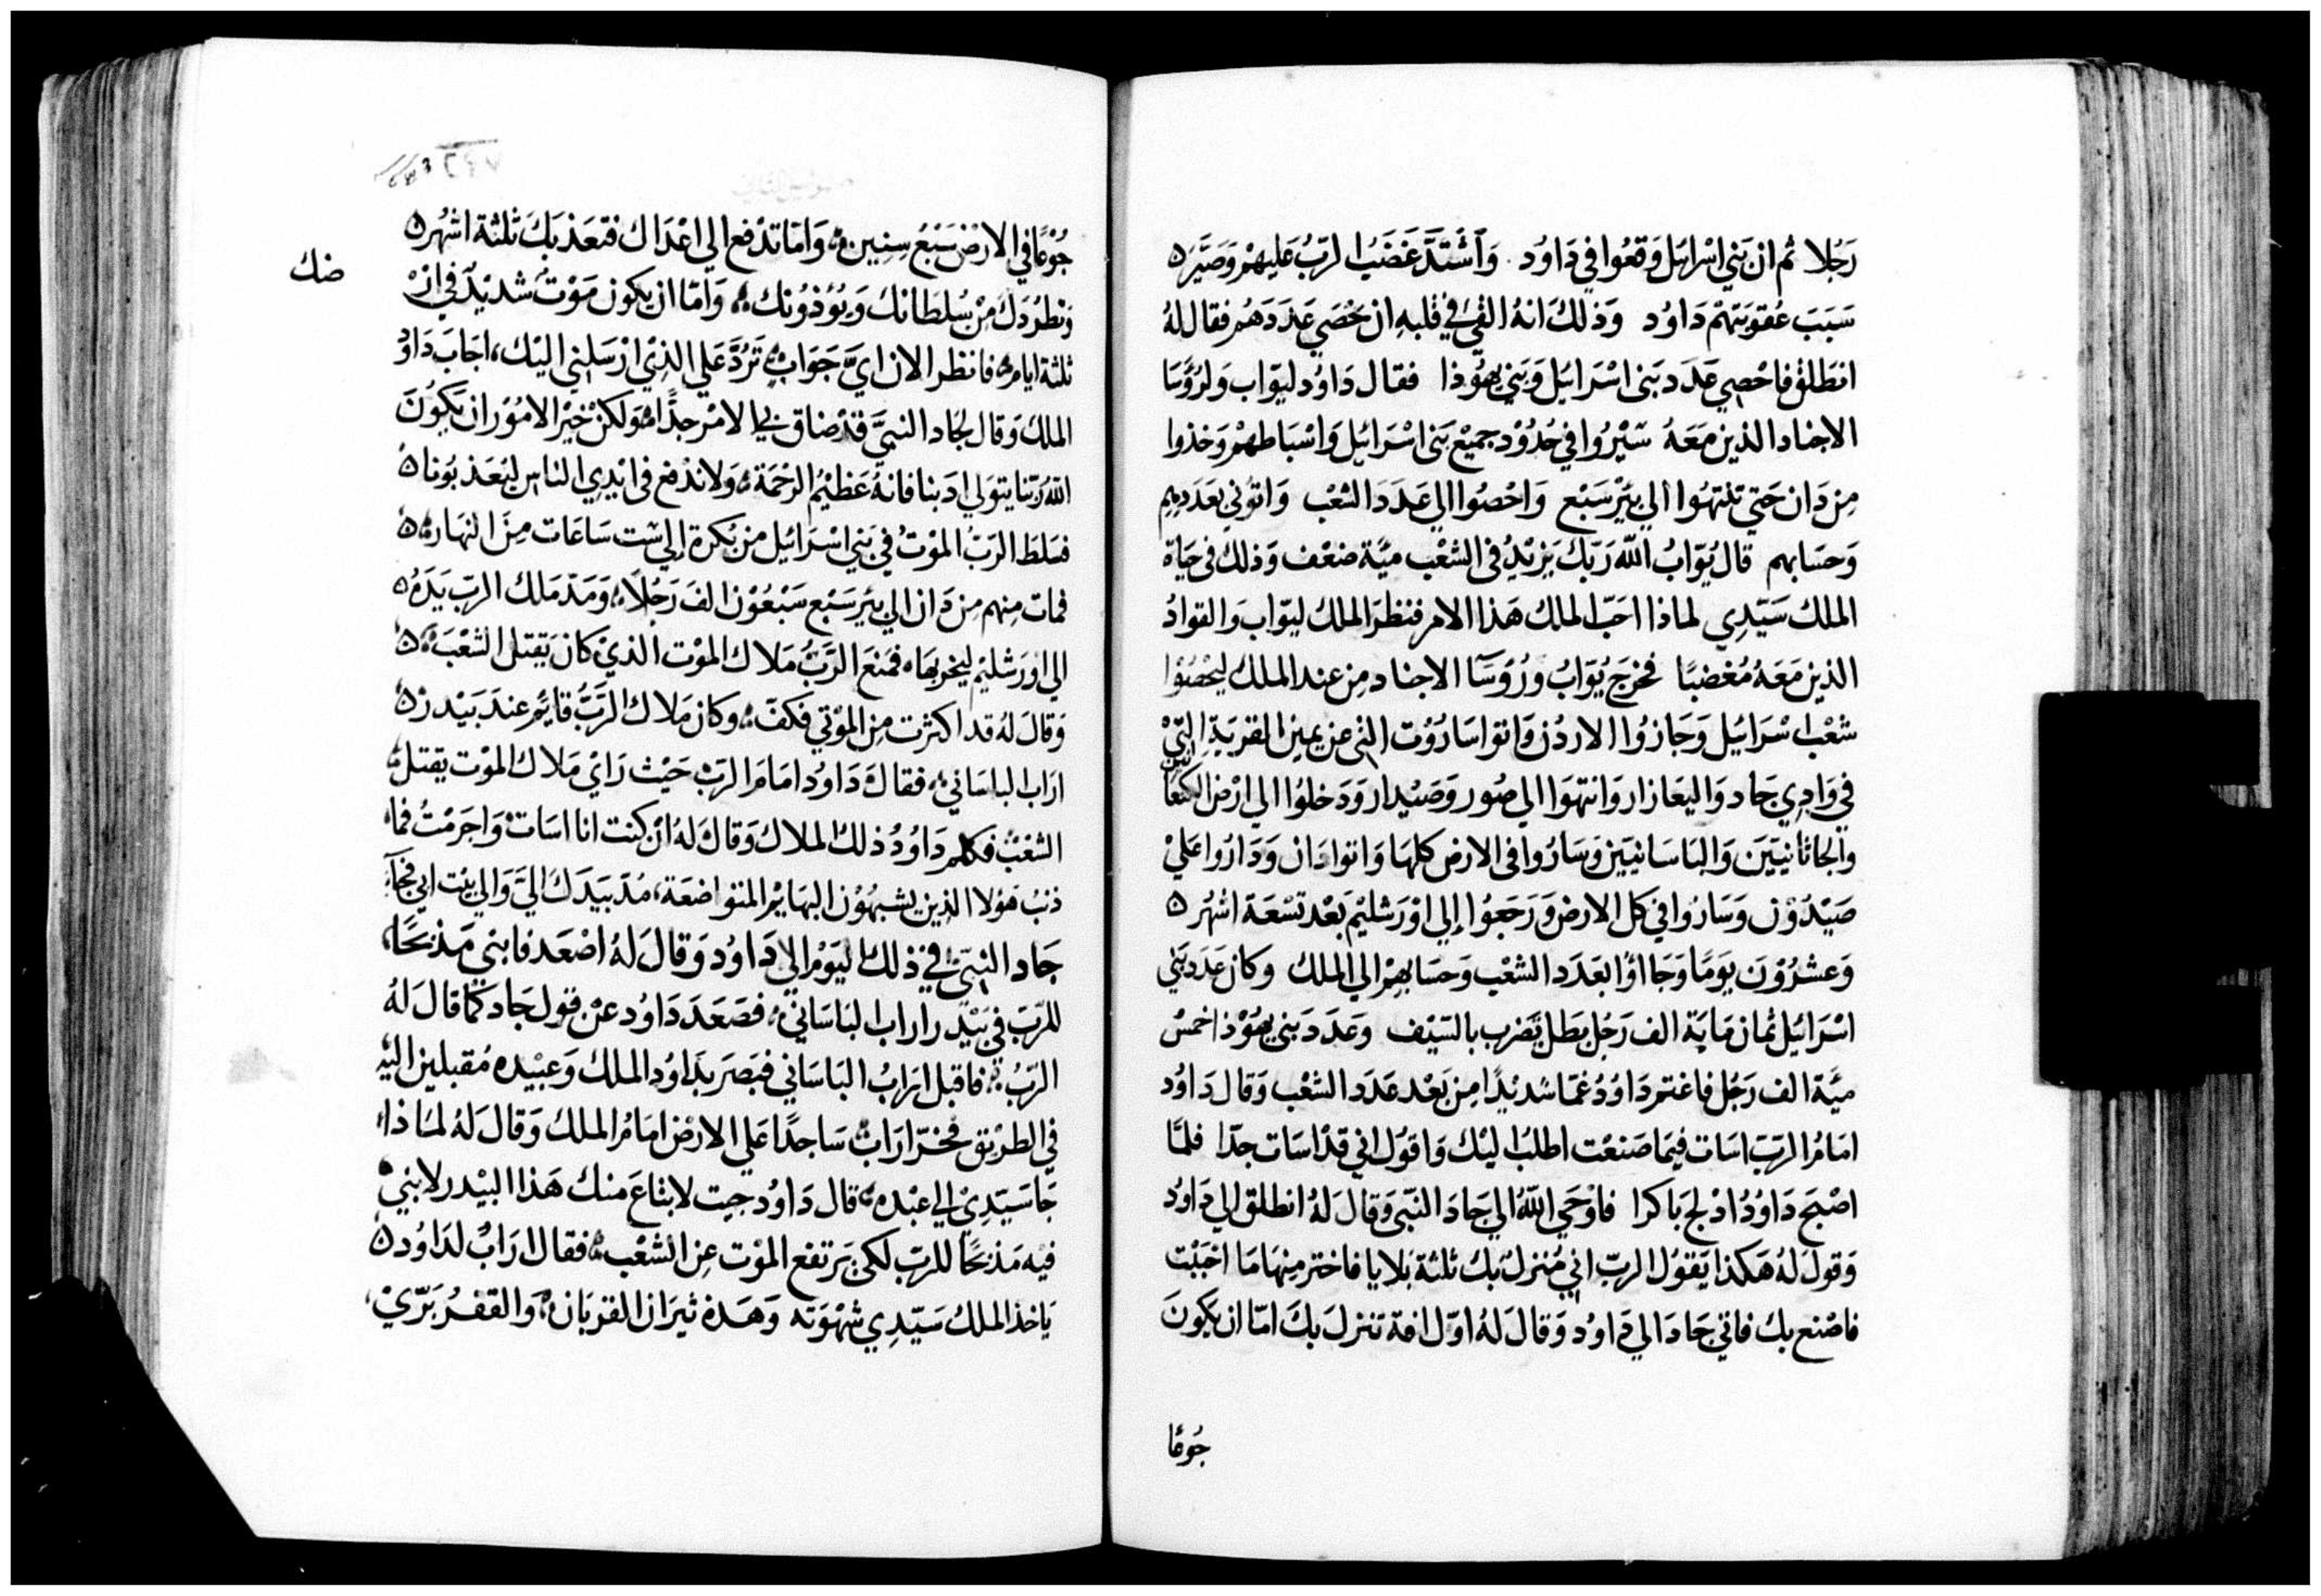 رَجُلا ثم ان بَني اسْرايل وَقعُوا في دَاوُد. وَآشْتدَّ غَضَبُ الرّبّ عَليهمْ وَصَيَّر
سَبَبَ عُقوبَتهمْ دَاوُد وَذلكَ انهُ القيَ في قلبهِ ان يحْصَي عَدَدَهُم فقال لهُ
انطَلقْ فاحْصِي عَدَد بَنى اسْرَائيل وَبَني يهُوذا فقال دَاوُد ليوّاب وَلرُؤسَا
الاجنادِ الذين مَعَهُ سَيْرُوا في حُدُوْد جميْع بَنى اسْرَائيل وَاسْبَاطهمْ وَخذوا
مِن دَان حَتي تنتهُوا الي بئرْ سَبْع وَاحْصُوا الي عَدَدَ الشعْب وَاتوُني بعَدَدِهِم
وَحسَابهم قال يُوّابُ اللّه رَبّك يَزيْدُ فى الشعْب ميَّة ضعْف وَذلك فى حَيَاة
الملك سَيّدِي لماذا احَبّ الملك هَذا الامر فنظرَ الملكُ ليوّاب وَالقوادُ
الذين مَعَهُ مُغضبًا فخرجَ يُوّابُ ورُوَسَآ الاجناد مِن عند الملك ليُحْصُوا
شعْب اسْرَائيل وَجَازُوا الاردُن وَاتوا سَارُوْت التى عن يمين القريَةِ التّيْ
في وَادِي جَاد وَاليعَازار وَانتهَوا الي صُور وَصَيْدار وَدَخلوُا الي ارْض الكنعَانيين
وَالجَاثانيّيَن وَاليَاسَانييّن وَسَارُوا فى الارض كلهَا وَاتوا دَان وَدَارُوا عَليْ
صَيْدُوْن وَسَارُوا في كل الارض وَرَجَعُوا إلي اوْرَشليْم بَعْد تسْعَة اشهُر
وَعشرُوْنَ يَوَمًا وَجَاأوُا بعَدَد الشعْب وَحسَابهِمْ الي الملك وكان عَدَد بَني
اسْرَائيل ثمان مَايَة الف رَجُل بَطل يَضرب بالسّيْف وَعَدَد بَنى يهُوْذا خمسْ
ميَّة الف رَجُل فاغتم دَاوُدُ غمًّا شديْدًا مِن بَعْد عَدَد الشعْب وَقال دَاوُد
امَامُ الرّبّ اسَات فيمَا صَنعْت اطلبُ اليْك وَاقوُل اني قدْ اسَات جدّا فلمَّا
اصْبَح دَاوُدُ ادْلجَ بَاكرا فاوْحَي اللّهُ الي جَادَ النّبى وَقال لهُ انطلق الي دَاوُد
وَقوْل لهُ هَكذا يَقوُل الربّ اني مُنزلٌ بك ثلثة بَلايا فاختر مِنهَا مَا احْبَبْت
فاصْنع بك فاتي جَادَ الي دَاوُد وَقال لهُ اوّل افة تنزل بكَ امّا ان يكونَ
جُوعًا
جُوْعًا في الارْض سَبْعُ سِنيِن وَامّا تدْفع الي اعْدَاك فتعَذبَكَ ثلثة اشهُر
ضنك
وَتطرُدَكَ مِنْ سُلطَانكَ وَيؤُذوُنك وَامّا ان يكون مَوْتٌ شديْدٌ في ارْ
ثلثة ايام فانظر الان ايَّ جَوَابٍ تَرُدَّ عَلي الذِيْ ارْسَلني اليْك، اجَابَ دَاوُ
الملك وَقال لجَاد النبيَّ قدْ ضاق بي الامْر جدًّا وَلكنْ خيْر الامُوْر ان يَّكوُنَ
اللّهُ رَبّنا يتوَلي ادَبنا فانهُ عَظيْمُ الرّحْمَة وَلا ندْفع فى ايْدِي الناس ليُعَذبُوَنا
فسَلطَ الرّبّ الموْتُ في بَني اسْرَائيل من بُكرة إلي ستّ سَاعَات مِنَ النهَار
فمات مِنهم مِن دَان الي بئر سَبْع سَبْعُوْن الف رَجُلاً وَمَدّ مَلاك الربّ يَدَهُ
الي اوْرَشليْم ليخربهَا فمَنعَ الرَّبُّ مَلاك الموْت الذيْ كانَ يَقتل الشعْبَ
وَقال لهُ قد اكثرت مِن الموْتي فكفّ وكان مَلاك الرَبّ قايمْ عندَ بَيْدرْ
ارَاب الياسَاني فقال دَاوُد امَامَ الربّ حَيْث رَايَ مَلاك الموْت يقتل
الشعْبْ فكلم دَاوُدُ ذلك الملاك وَقال لهُ انْ كنت انا اسَات وَاجَرَمْتُ فما
ذنبُ هَؤلا الذِين يشبهُوْن البهَايمْ المتواضعَة، مُدّ بَيدَكَ اليَّ وَالي بيْت ابي فجآء
جَاد النبيّ في ذلك اليَوْم الي دَاوُد وَقال لهُ اصْعَد فابني مَذبحًا
للرّبّ في بَيْدر اراب اليَاسَاني فصَعَدَ دَاوُد عنْ قول جَاد كمَا قال لهُ
الربّ فاقبل ارَابُ اليَاسَاني فبَصرَ بدَاوُد الملك وَعبيْده مُقبلين اليْه
في الطريْق فخرّ ارَابْ سَاجدًا عَلي الارْض امَامُ الملك وَقال لهُ لماذا
جَا سَيّدِيْ الي عبْده قال دَاوُد جيت لابتاعَ منك هَذا البيْدر لابني
فيْه مَذبحًا للربّ لكي يَرتفع الموْت عِن الشعْب فقال ارَابُ لدَاوُد
يَاخذ الملكُ سَيّدِي شهْوَته وَهَذه ثيرَان القربَان وَالقفرُ بَرّيْ